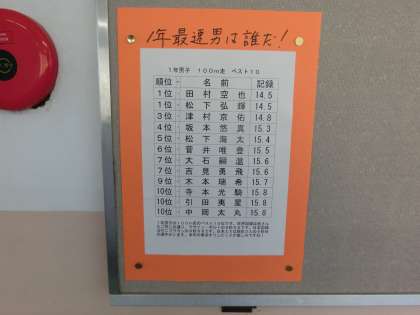 1年最速男は誰だ!
1年男子 100m走 ベスト10
順位 名前 記録
1位 田村空也 14.5
1位 松下弘輝 14.5
3位 津村京佑 14.8
4位 坂本悠真 15.3
5位 松下海太 15.4
6位 菅井唯登 15.5
7位 大石嗣温 15.6
7位 吉見勇飛 15.6
9位 木本瑞希 15.7
10位 寺本光駿 15.8
10位 引田夷星 15.8
10位 中岡太丸 15.8